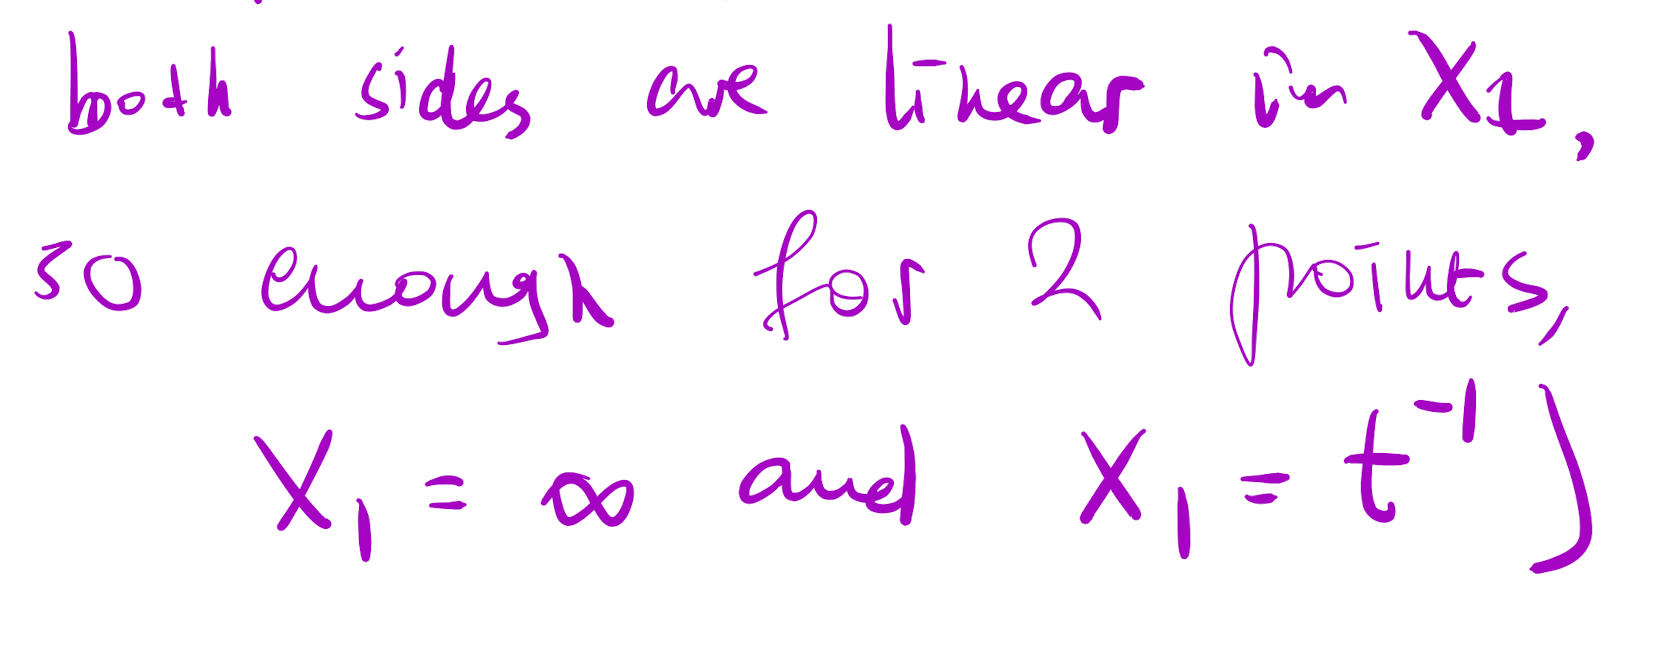 both sides are linear in X₁,
so enough for 2 points,
X₁ = ∞ and X₁ = t⁻¹)